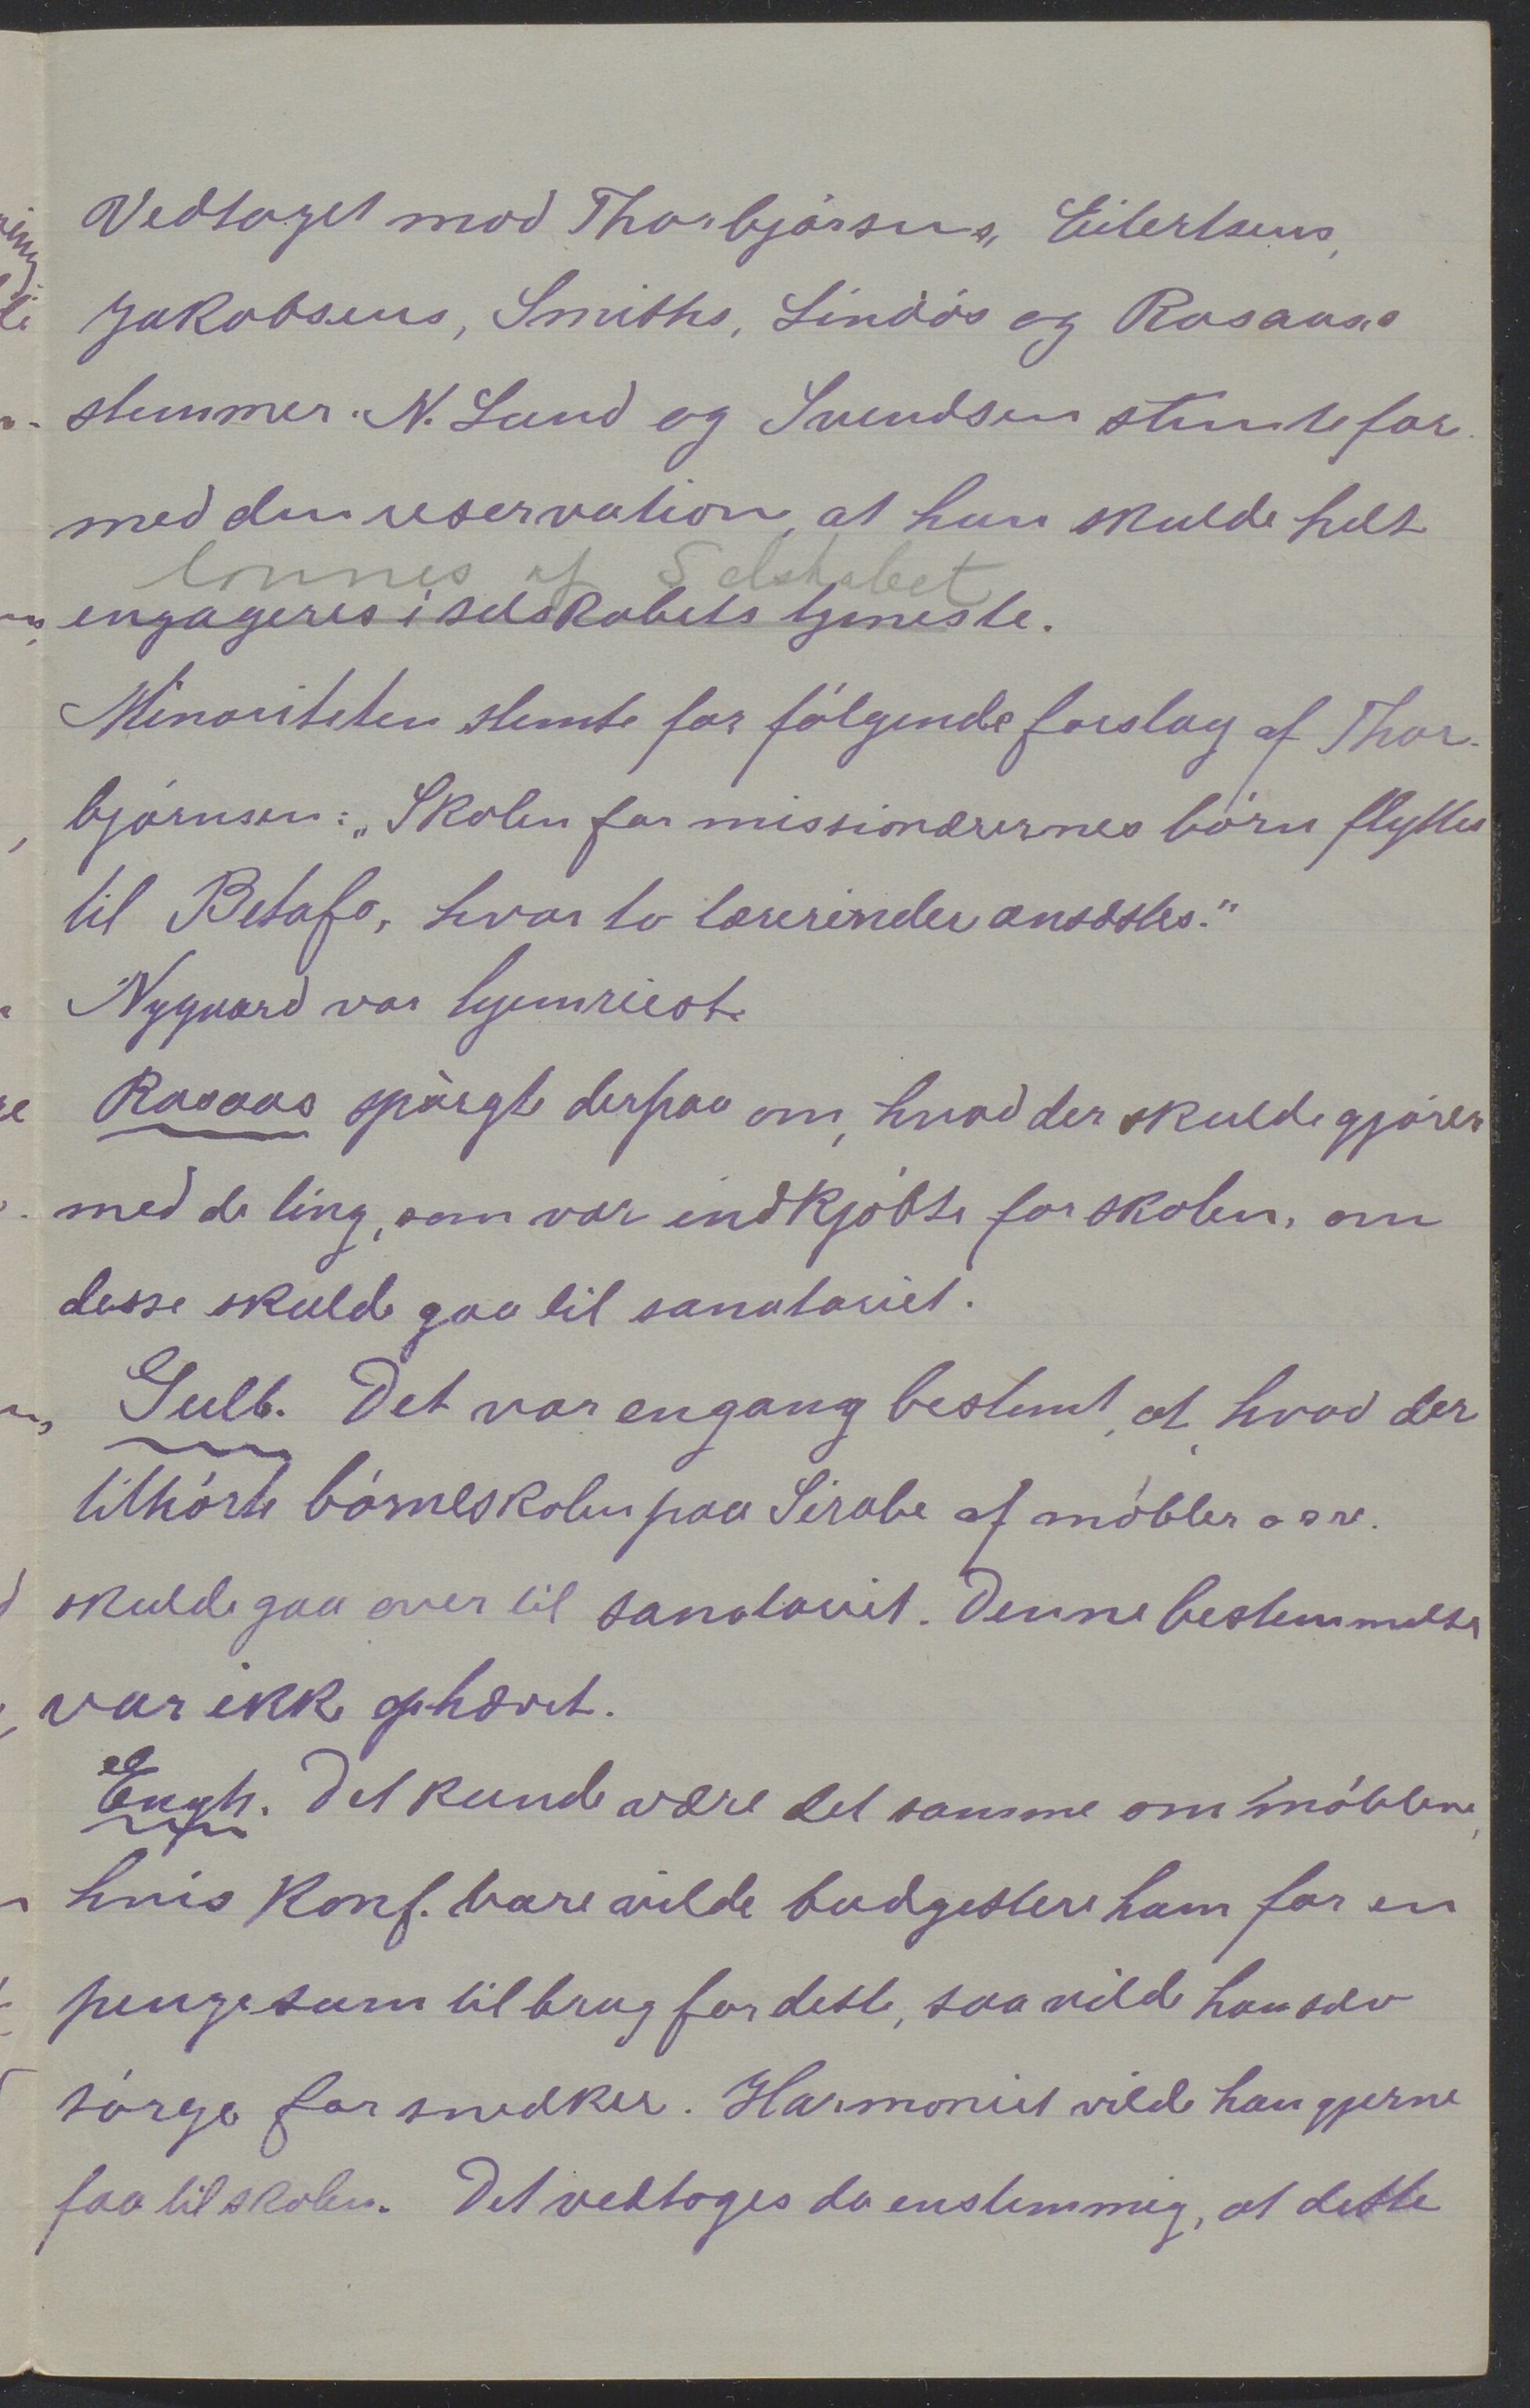 Vedtaget mod Thorbjørnsens, Eilertsens,
Jakobsens, Smiths, Lindøs og Rosaas's
stemmer. N. Lund og Svendsen stemte for
med den reservation, at hun skulde helt
lønnes af Selskabet
engageres i selskabets tjeneste.
Minoriteten stemte for følgende forslag af Thor-
bjørnsen: „Skolen for missionærernes børn flyttes
til Betafo, hvor to lærerinder ansættes."
Nygaard var hjemreist.
Rosaas spørgte derpaa om, hvad der skulde gjøres
med de ting, som var indkjøbte for skolen, om
desse skulde gaa til sanatoriet.
Gulb. Det var engang bestemt, at, hvad der
tilhørte børneskolen paa Sirabe af møbler o s v.
skulde gaa over til sanatoriet. Denne bestemmelse
var ikke ophævet.
Engh. Det kunde være det samme om møblene,
hvis Konf. bare vilde budgettere ham for en
pengesum til brug for dette, saa vilde han selv
sørge for snedker. Harmoniet vilde han gjerne
faa til skolen. Det vedtoges da enstemmig, at dette